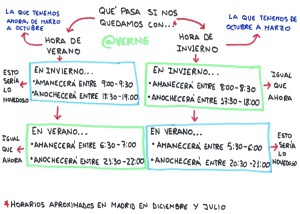 QUÉ PASA SI NOS
QUEDAMOS CON...
@VERNE
LA QUE TENEMOS
AHORA, DE MARZO
A OCTUBRE
HORA DE
VERANO
LA QUE TENEMOS DE
OCTUBRE A MARZO
HORA DE
INVIERNO
ESTO
SERÍA
LO
NOVEDOSO
EN INVIERNO...
• AMANECERÁ ENTRE 9:00-9:30
• ANOCHECERÁ ENTRE 18:30-19:00
EN INVIERNO...
• AMANECERÁ ENTRE 8:00-8:30
• ANOCHECERÁ ENTRE 17:30-18:00
IGUAL
QUE
AHORA
IGUAL
QUE
AHORA
EN VERANO...
• AMANECERÁ ENTRE 6:30-7:00
• ANOCHECERÁ ENTRE 21:30-22:00
EN VERANO...
• AMANECERÁ ENTRE 5:30-6:00
• ANOCHECERÁ ENTRE 20:30-21:00
ESTO
SERÍA
LO
NOVEDOSO
* HORARIOS APROXIMADOS EN MADRID EN DICIEMBRE Y JULIO